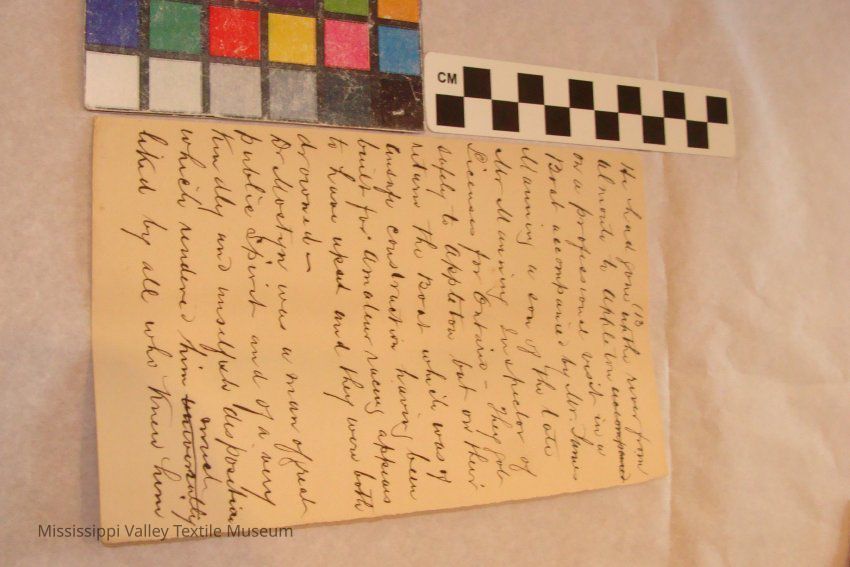 (13
He had gone up the river from
Almonte to Appleton accompanied
on a professional visit in a
Boat accompanied by Mr. James
Manning a son of the late
Mr Manning Inspector of
Licenses for Ontario - They got
safely to Appleton but on their
return the Boat which was of
unsafe construction having been
built for amateur racing appears
to have upset and they were both
drowned -
Dr Mostyn was a man of great
Public Spirit and of a very
Kindly and unselfish disposition
which rendered him universally
much
liked by all who knew him
CM
Mississippi Valley Textile Museum